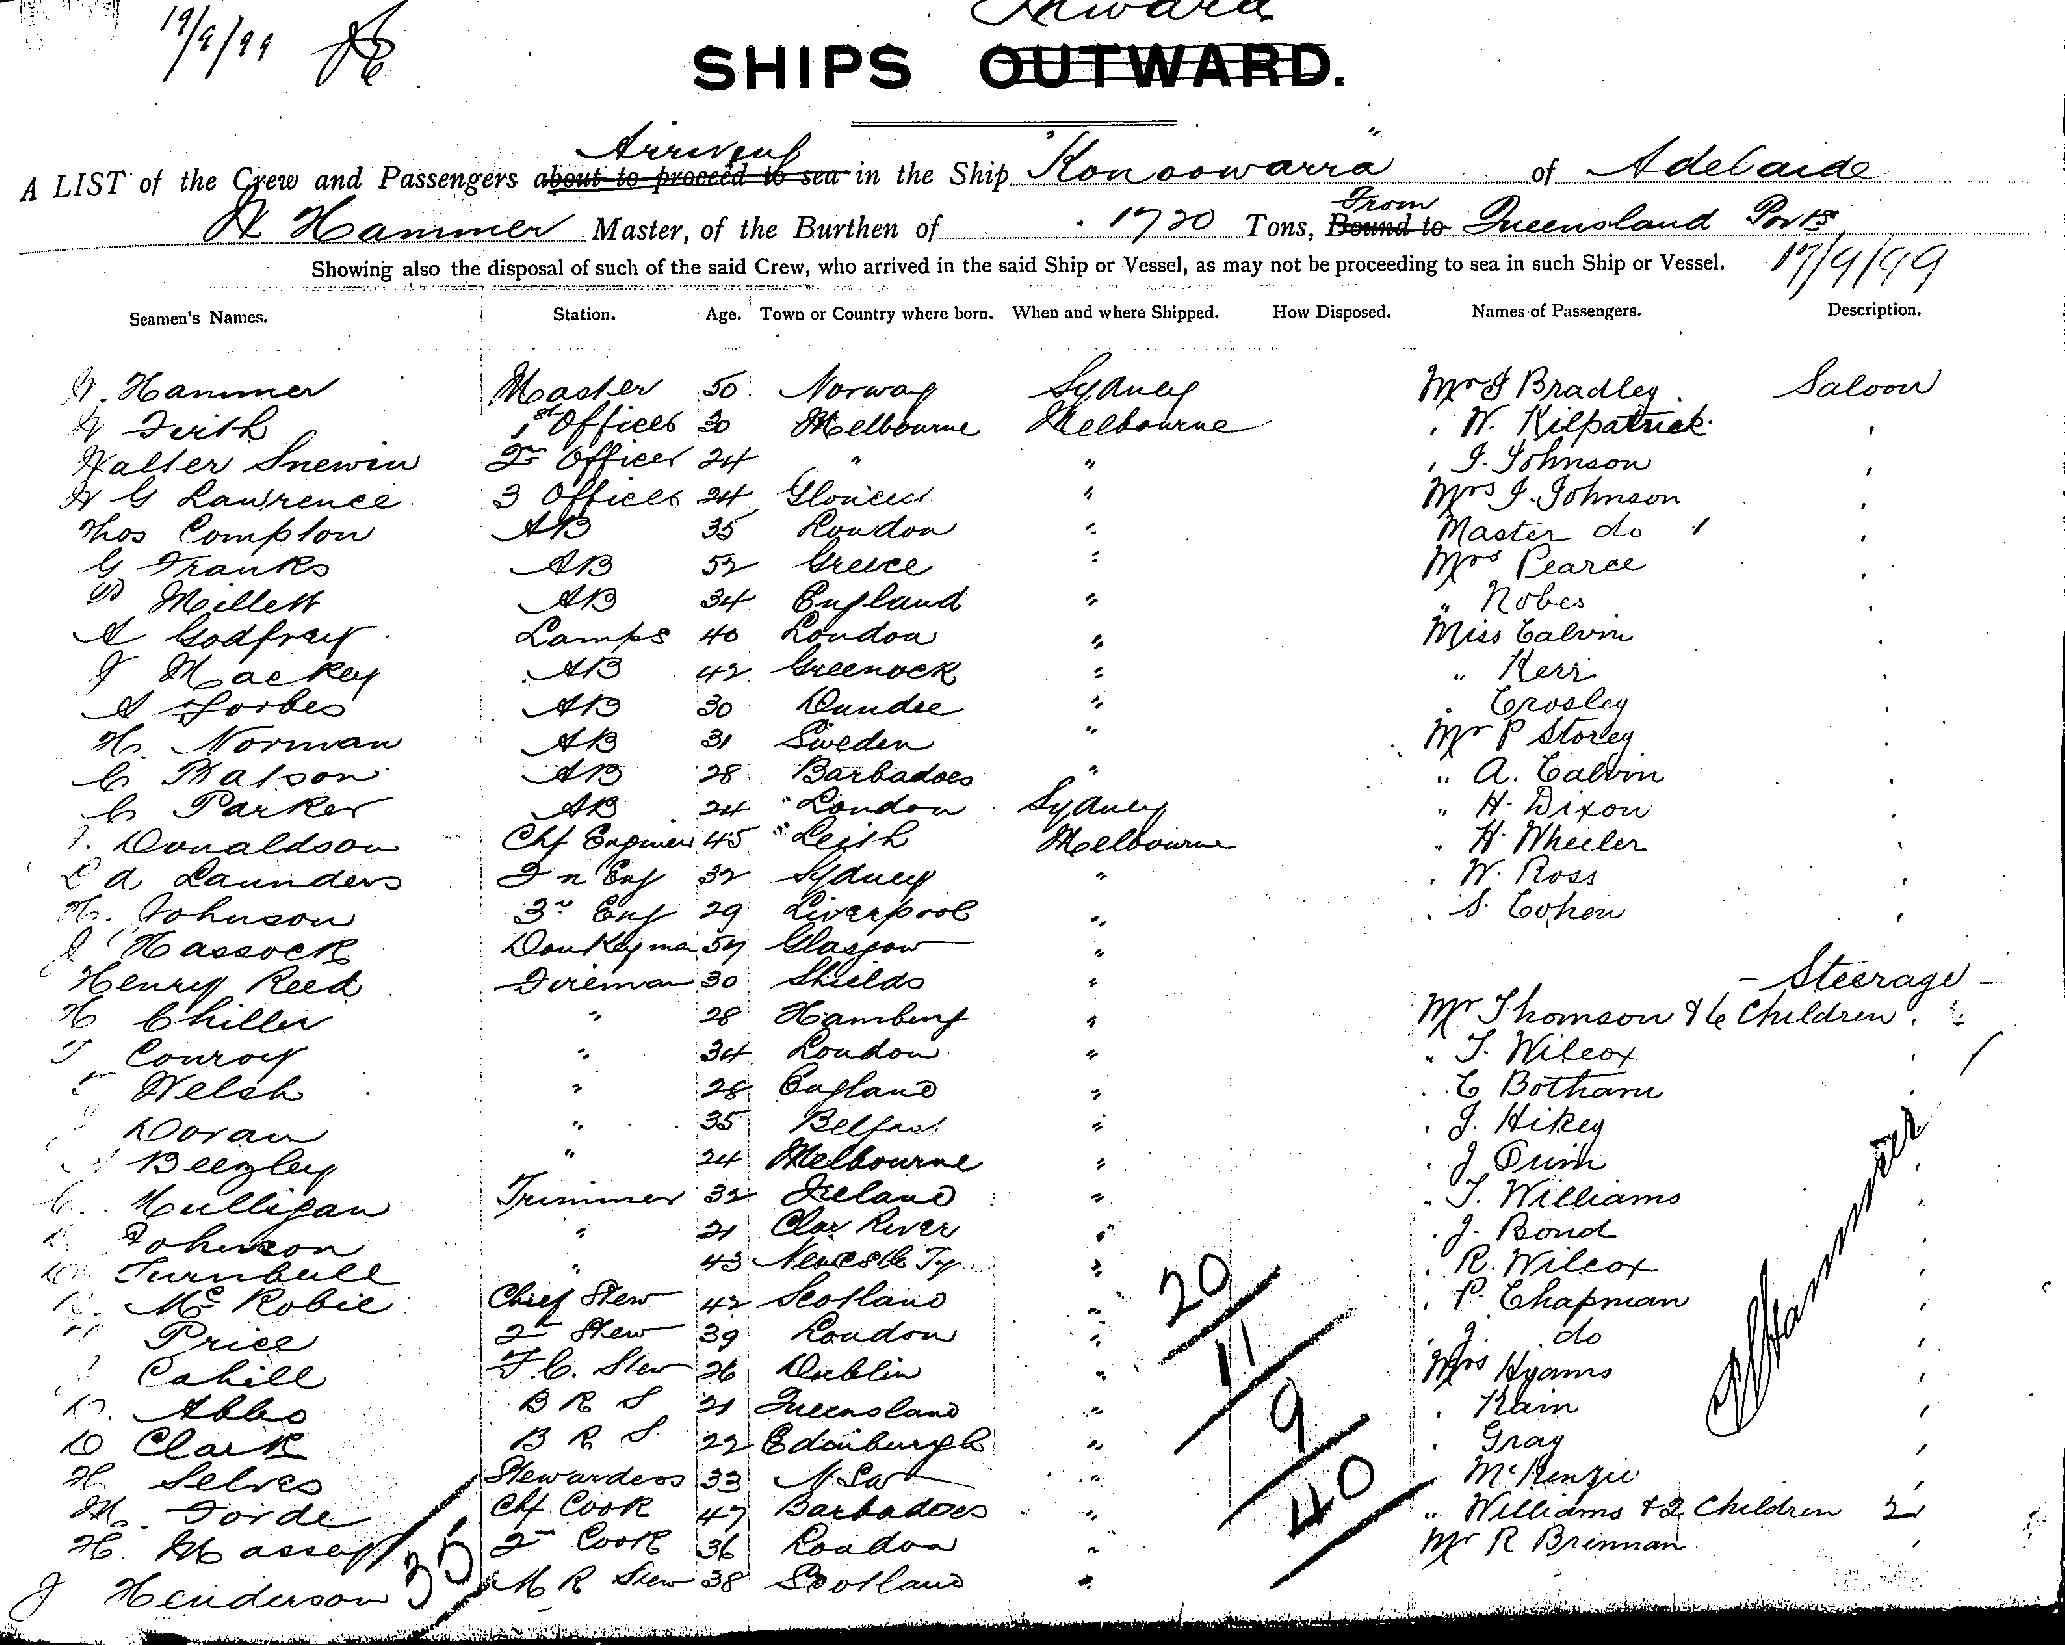 19/9/99
Inward
SHIPS OUTWARD.
Arriving
A LIST of the Crew and Passengers about to proceed to sea in the Ship Konoowarra of Adelaide
From
H Hammer Master, of the Burthen of 1720 Tons, Bound to Queensland Ports
Showing also the disposal of such of the said Crew, who arrived in the said Ship or Vessel, as may not be proceeding to sea in such Ship or Vessel. 17/9/99
Seamen's Names. Station. Age. Town or Country where born. When and where Shipped. How Disposed. Names of Passengers. Description.
Hammer Master 50 Norway Sydney Mr J Bradley Saloon
Firth 1st Officer 30 Melbourne Melbourne " W. Kilpatrick "
Walter Snewin 2nd Officer 24 " " " J. Johnson "
H G Lawrence 3 Officer 24 " Mrs J. Johnson "
Thos Compton AB 35 London " Master do 1 "
G Franks AB 52 Greece " Mrs Pearce "
Millett AB 34 England " " Nobes "
A Godfrey Lamps 40 London " Miss Calvin "
J Mackey AB 42 Greenock " " Kerr "
A Forbes AB 30 Dundee " " Crosley "
H. Norman AB 31 Sweden " Mr P Storey "
C. Batson AB 28 Barbadoes " " A. Calvin "
C Parker AB 24 London Sydney " H. Dixon "
Donaldson Chf Engineer 45 Leith Melbourne " H. Wheeler "
Launders 2n Eng 32 Sydney " " W. Ross "
H. Johnson 3rd Eng 29 Liverpool " " S. Cohen "
J Hassock Donkeyman Glasgow "
Henry Reed Fireman 30 Shields " - Steerage -
H Chiller " 28 Hamburg " Mr Thomson & 6 Children "
Conroy " 34 London " " T. Wilcox "
Welsh " 28 England " " C Botham "
Doran " 35 Belfast " " J. Hikey
Beezley " 24 Melbourne " " J Prim "
Mulligan Trimmer 32 Ireland " " T. Williams "
Johnson " 21 River " " J. Bond "
Turnbull " 43 Newcastle " " R. Wilcox "
McRobie Chief Stew 42 Scotland " " P. Chapman "
Price 2nd Stew 39 London " " J. do "
Cahill F.C. Stew 26 Dublin " Mrs Hyams "
Abbs B R S 21 Queensland " " Rain "
D Clark B R S. 22 Edinburgh " " Gray "
H Selves Stewardess 33 N S W " McKenzie "
M. Forde Chf Cook 47 Barbadoes " " Williams & 2 Children 2 "
H. Massey 2nd Cook 36 London " Mr R Brennan "
J Henderson M R Stew 38 Scotland "
35
20
11
9
40
Hammer